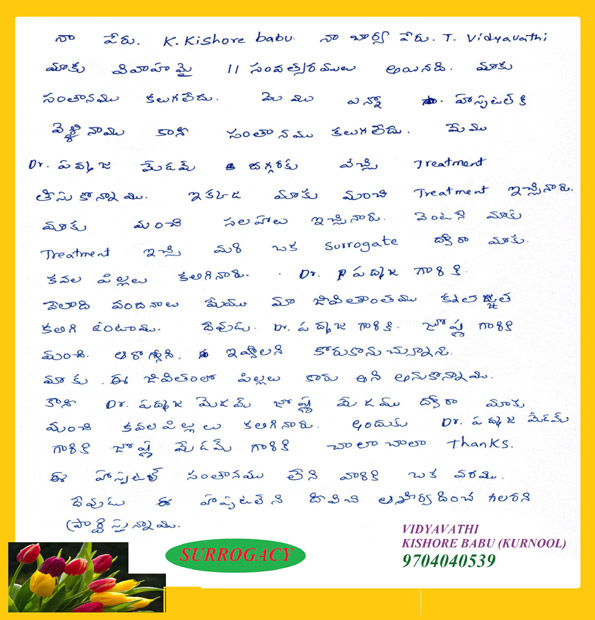 నా పేరు. K. Kishore babu. నా భార్య పేరు. T. Vidyavathi
మాకు వివాహమై 11 సంవత్సరములు అయినది. మాకు
సంతానము కలుగలేదు. మేము ఎన్నో హాస్పటల్ కి
వెళ్ళినాము కాని సంతానము కలుగలేదు. మేము
Dr. పద్మజ మేడమ్ దగ్గరకు వచ్చి Treatment
తీసుకొన్నాము. ఇక్కడ మాకు మంచి Treatment ఇచ్చినారు.
మాకు మంచి సలహాలు ఇచ్చినారు. వెంటనే మాకు
Treatment ఇచ్చి మరి ఒక Surrogate ద్వారా మాకు
కవల పిల్లలు కలిగినారు. Dr. P పద్మజ గారికి
వేలాది వందనాలు మేము మా జీవితాంతము కృతజ్ఞత
కలిగి ఉంటాము. దేవుడు. Dr. పద్మజ గారికి. జ్యోష్న గారికి
మంచి ఆరోగ్యాన్ని, ఇవ్వాలని కోరుకొనుచున్నాను.
మాకు ఈ జీవితంలో పిల్లలు కారు అని అనుకొన్నాము.
కాని Dr. పద్మజ మెడమ్ జ్యోష్న మేడము ద్వారా మాకు
మంచి కవలపిల్లలు కలిగినారు. అందుకు Dr. పద్మజ మేడమ్
గారికి జ్యోష్న మేడమ్ గారికి చాలా చాలా Thanks.
ఈ హాస్పటల్ సంతానము లేని వారికి ఒక వరము.
దేవుడు ఈ హస్పటల్ ని దీవించి ఆశీర్వదించ గలరని
ప్రార్థిస్తున్నాము.
VIDYAVATHI
KISHORE BABU (KURNOOL)
9704040539
SURROGACY